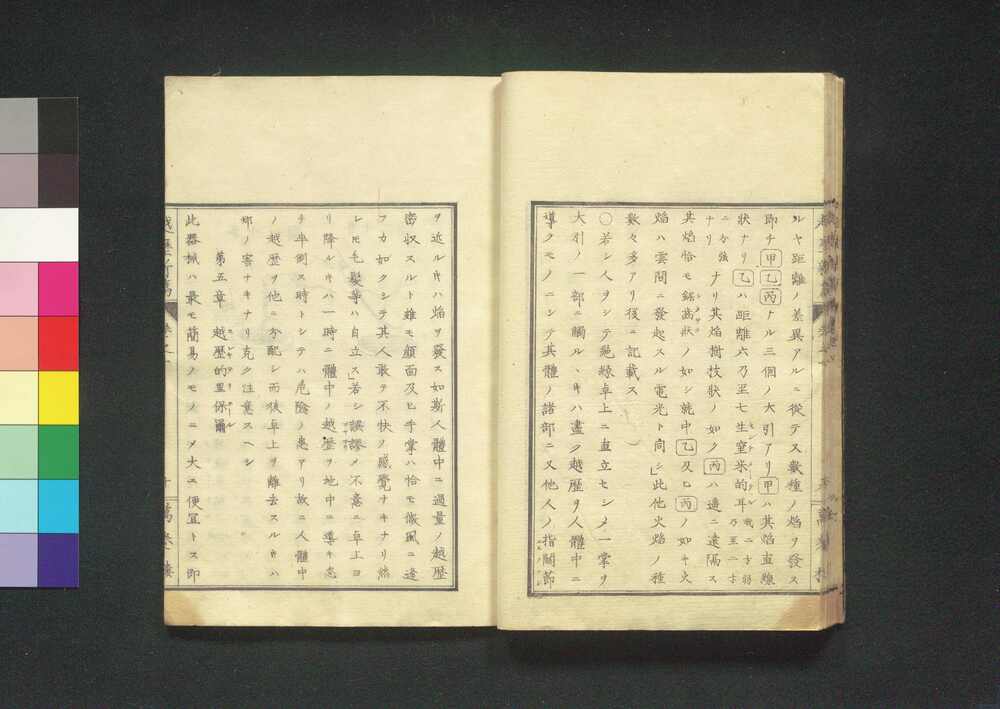 ルヤ距離ノ差異アルニ從テス數種ノ焰ヲ發ス
即チ甲乙丙ナル三個ノ大引アリ甲ハ其焰直線
状ナリ乙ハ距離六乃至七生窒米的耳我二寸弱乃至二寸
二分強ナリ其焰樹技狀ノ如ク丙ハ遙ニ遠隔ス
ナリ
其焰恰モ鋸齒狀ノ如シ就中乙及ヒ丙ノ如キ火
焰ハ雲間ニ發起スル電光ト同シ」此他火焰ノ種
數々多アリ後ニ記載ス
〇若シ人ヲシテ絶縁卓上ニ直立セシメ一掌ヲ
大引ノ一部ニ觸ルヽキハ盡ク越歴ヲ人體中ニ
導クモノニシテ其體ノ諸部ニ又他人ノ指關節
ヲ近ルキハ焰ヲ發ス如斯人體中ニ過量ノ越歴
密収スルト雖モ顔面及ヒ手掌ハ恰モ微風ニ逢
フカ如クシテ其人敢テ不快ノ感覺ナキナリ然
レモ毛髮等ハ自立ス」若シ誤謬メ不意ニ卓上ヨ
リ降ルキハ一時ニ體中ノ越歴ヲ地中ニ導キ忽
チ卒倒ス時トシテハ危險ノ患アリ故ニ人體中
ノ越歴ヲ他ニ分配シ而後卓上ヲ離去スルキハ
些ノ害ナキナリ克ク注意スヘシ
第五章 越歴的里保爾
此器械ハ最モ簡易ノモノニメ大ニ便宜トス即